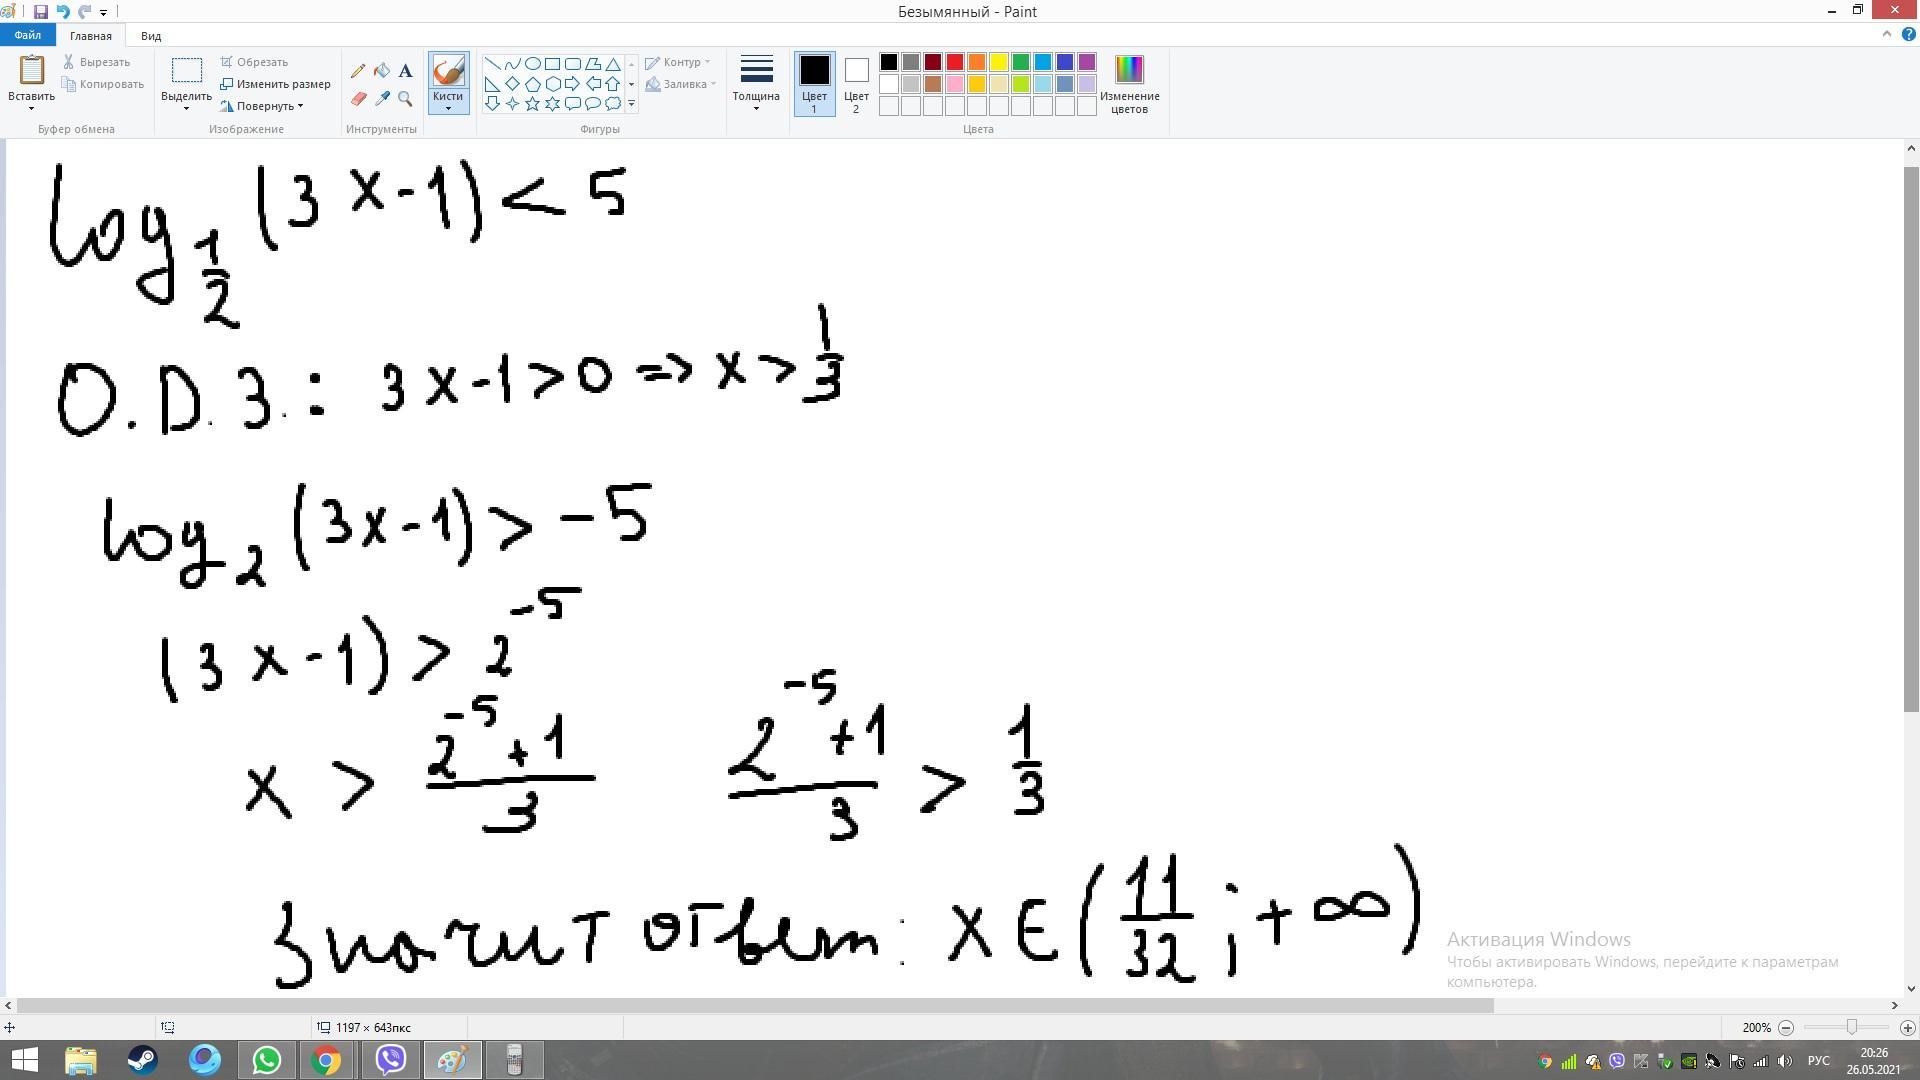 Безымянный - Paint
Файл Главная Вид
Вставить
Вырезать
Копировать
Буфер обмена
Выделить
Обрезать
Изменить размер
Повернуть
Изображение
A
Инструменты
Кисти
Фигуры
Контур
Заливка
Толщина
Цвет 1
Цвет 2
Изменение цветов
Цвета
log_{1/2} (3x-1) < 5
О.D.З.: 3x-1>0 => x > 1/3
log_2 (3x-1) > -5
(3x-1) > 2^{-5}
x > (2^{-5}+1)/3   (2^{-5}+1)/3 > 1/3
Значит ответ: x ∈ (11/32 ; +∞)
Активация Windows
Чтобы активировать Windows, перейдите к параметрам
компьютера.
1197 × 643пкс
200%
РУС
20:26
26.05.2021